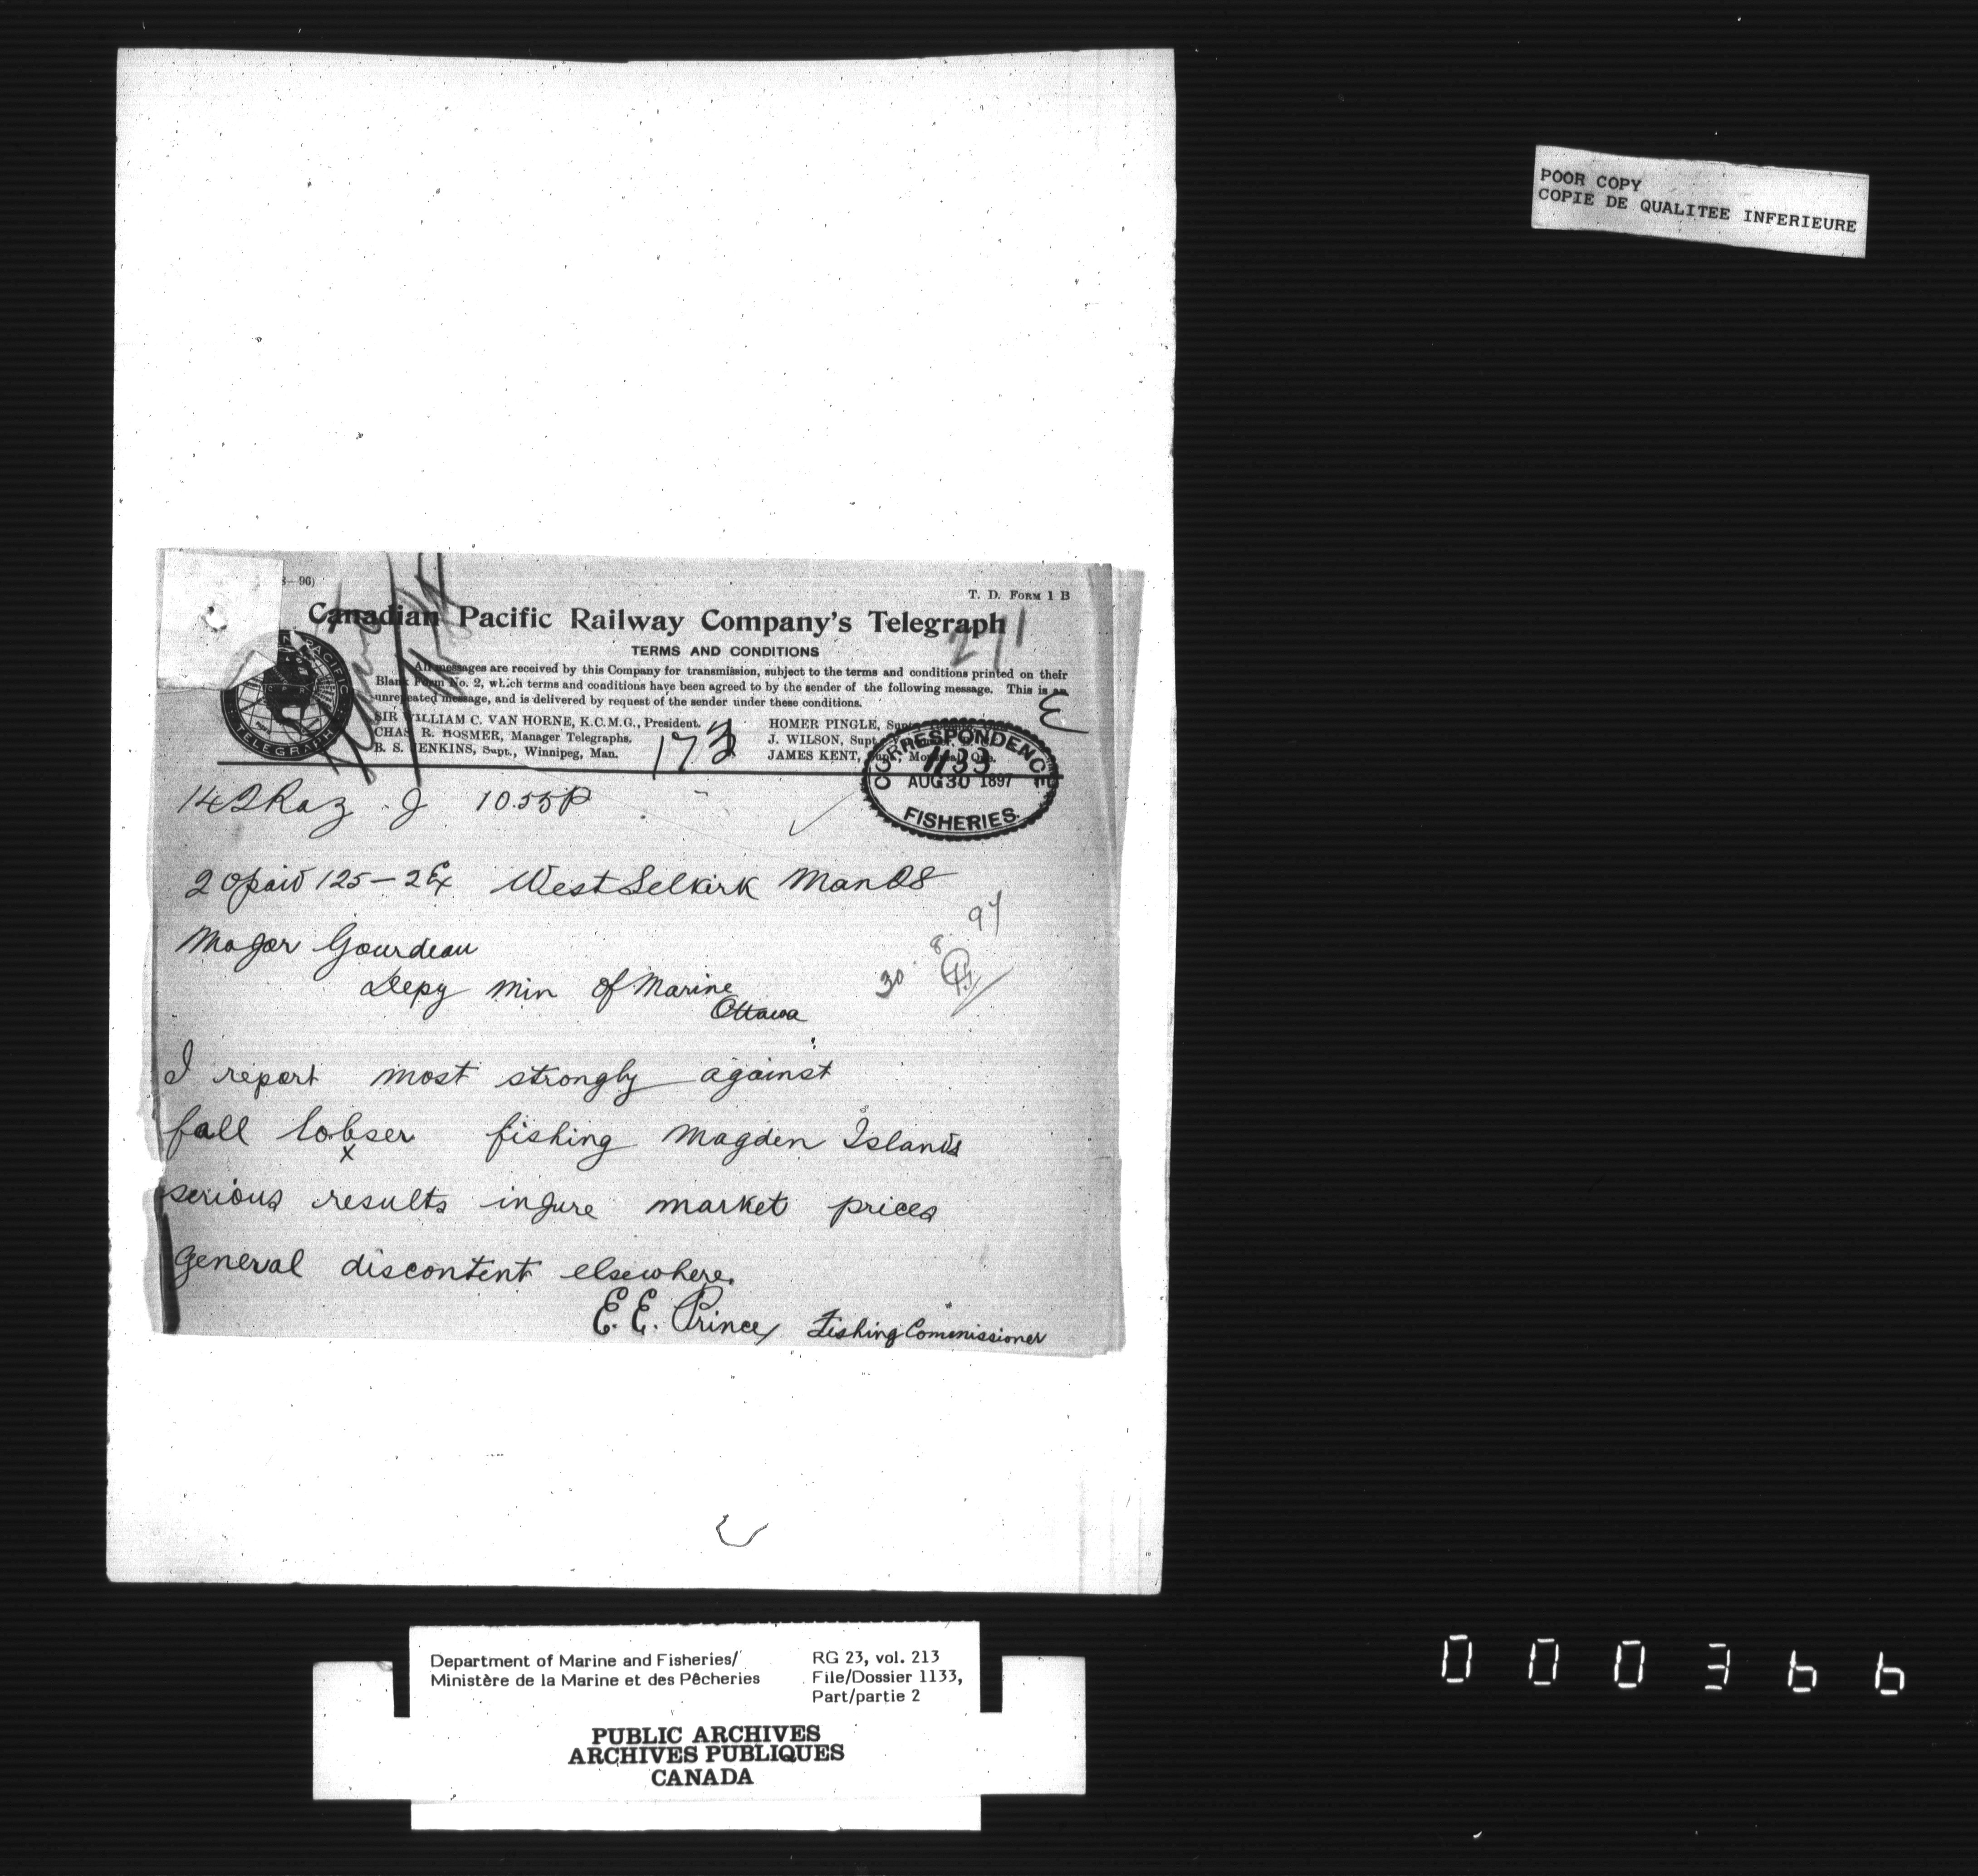 POOR COPY
COPIE DE QUALITEE INFERIEURE
8—96)
T. D. FORM 1 B
Canadian Pacific Railway Company's Telegraph
271
TERMS AND CONDITIONS
All messages are received by this Company for transmission, subject to the terms and conditions printed on their
Blank Form No. 2, which terms and conditions have been agreed to by the sender of the following message. This is an
unrepeated message, and is delivered by request of the sender under these conditions.
SIR WILLIAM C. VAN HORNE, K.C.M.G., President.
CHAS. R. HOSMER, Manager Telegraphs.
B. S. JENKINS, Supt., Winnipeg, Man.
173
HOMER PINGLE, Supt.
J. WILSON, Supt.
JAMES KENT, Supt., Montreal, Que.
PACIFIC
TELEGRAPH
CORRESPONDENCE
1133
AUG 30 1897
FISHERIES.
10.55P
20 paid 125 - 2 Ex West Selkirk Man 28
Major Gourdeau
Depy Min of Marine
Ottawa
30. 8. 97
I report most strongly against
fall lobser fishing Magden Islands
x
serious results injure market prices
General discontent elsewhere.
E. E. Prince Fishing Commissioner
Department of Marine and Fisheries/
Ministère de la Marine et des Pêcheries
RG 23, vol. 213
File/Dossier 1133,
Part/partie 2
PUBLIC ARCHIVES
ARCHIVES PUBLIQUES
CANADA
000366